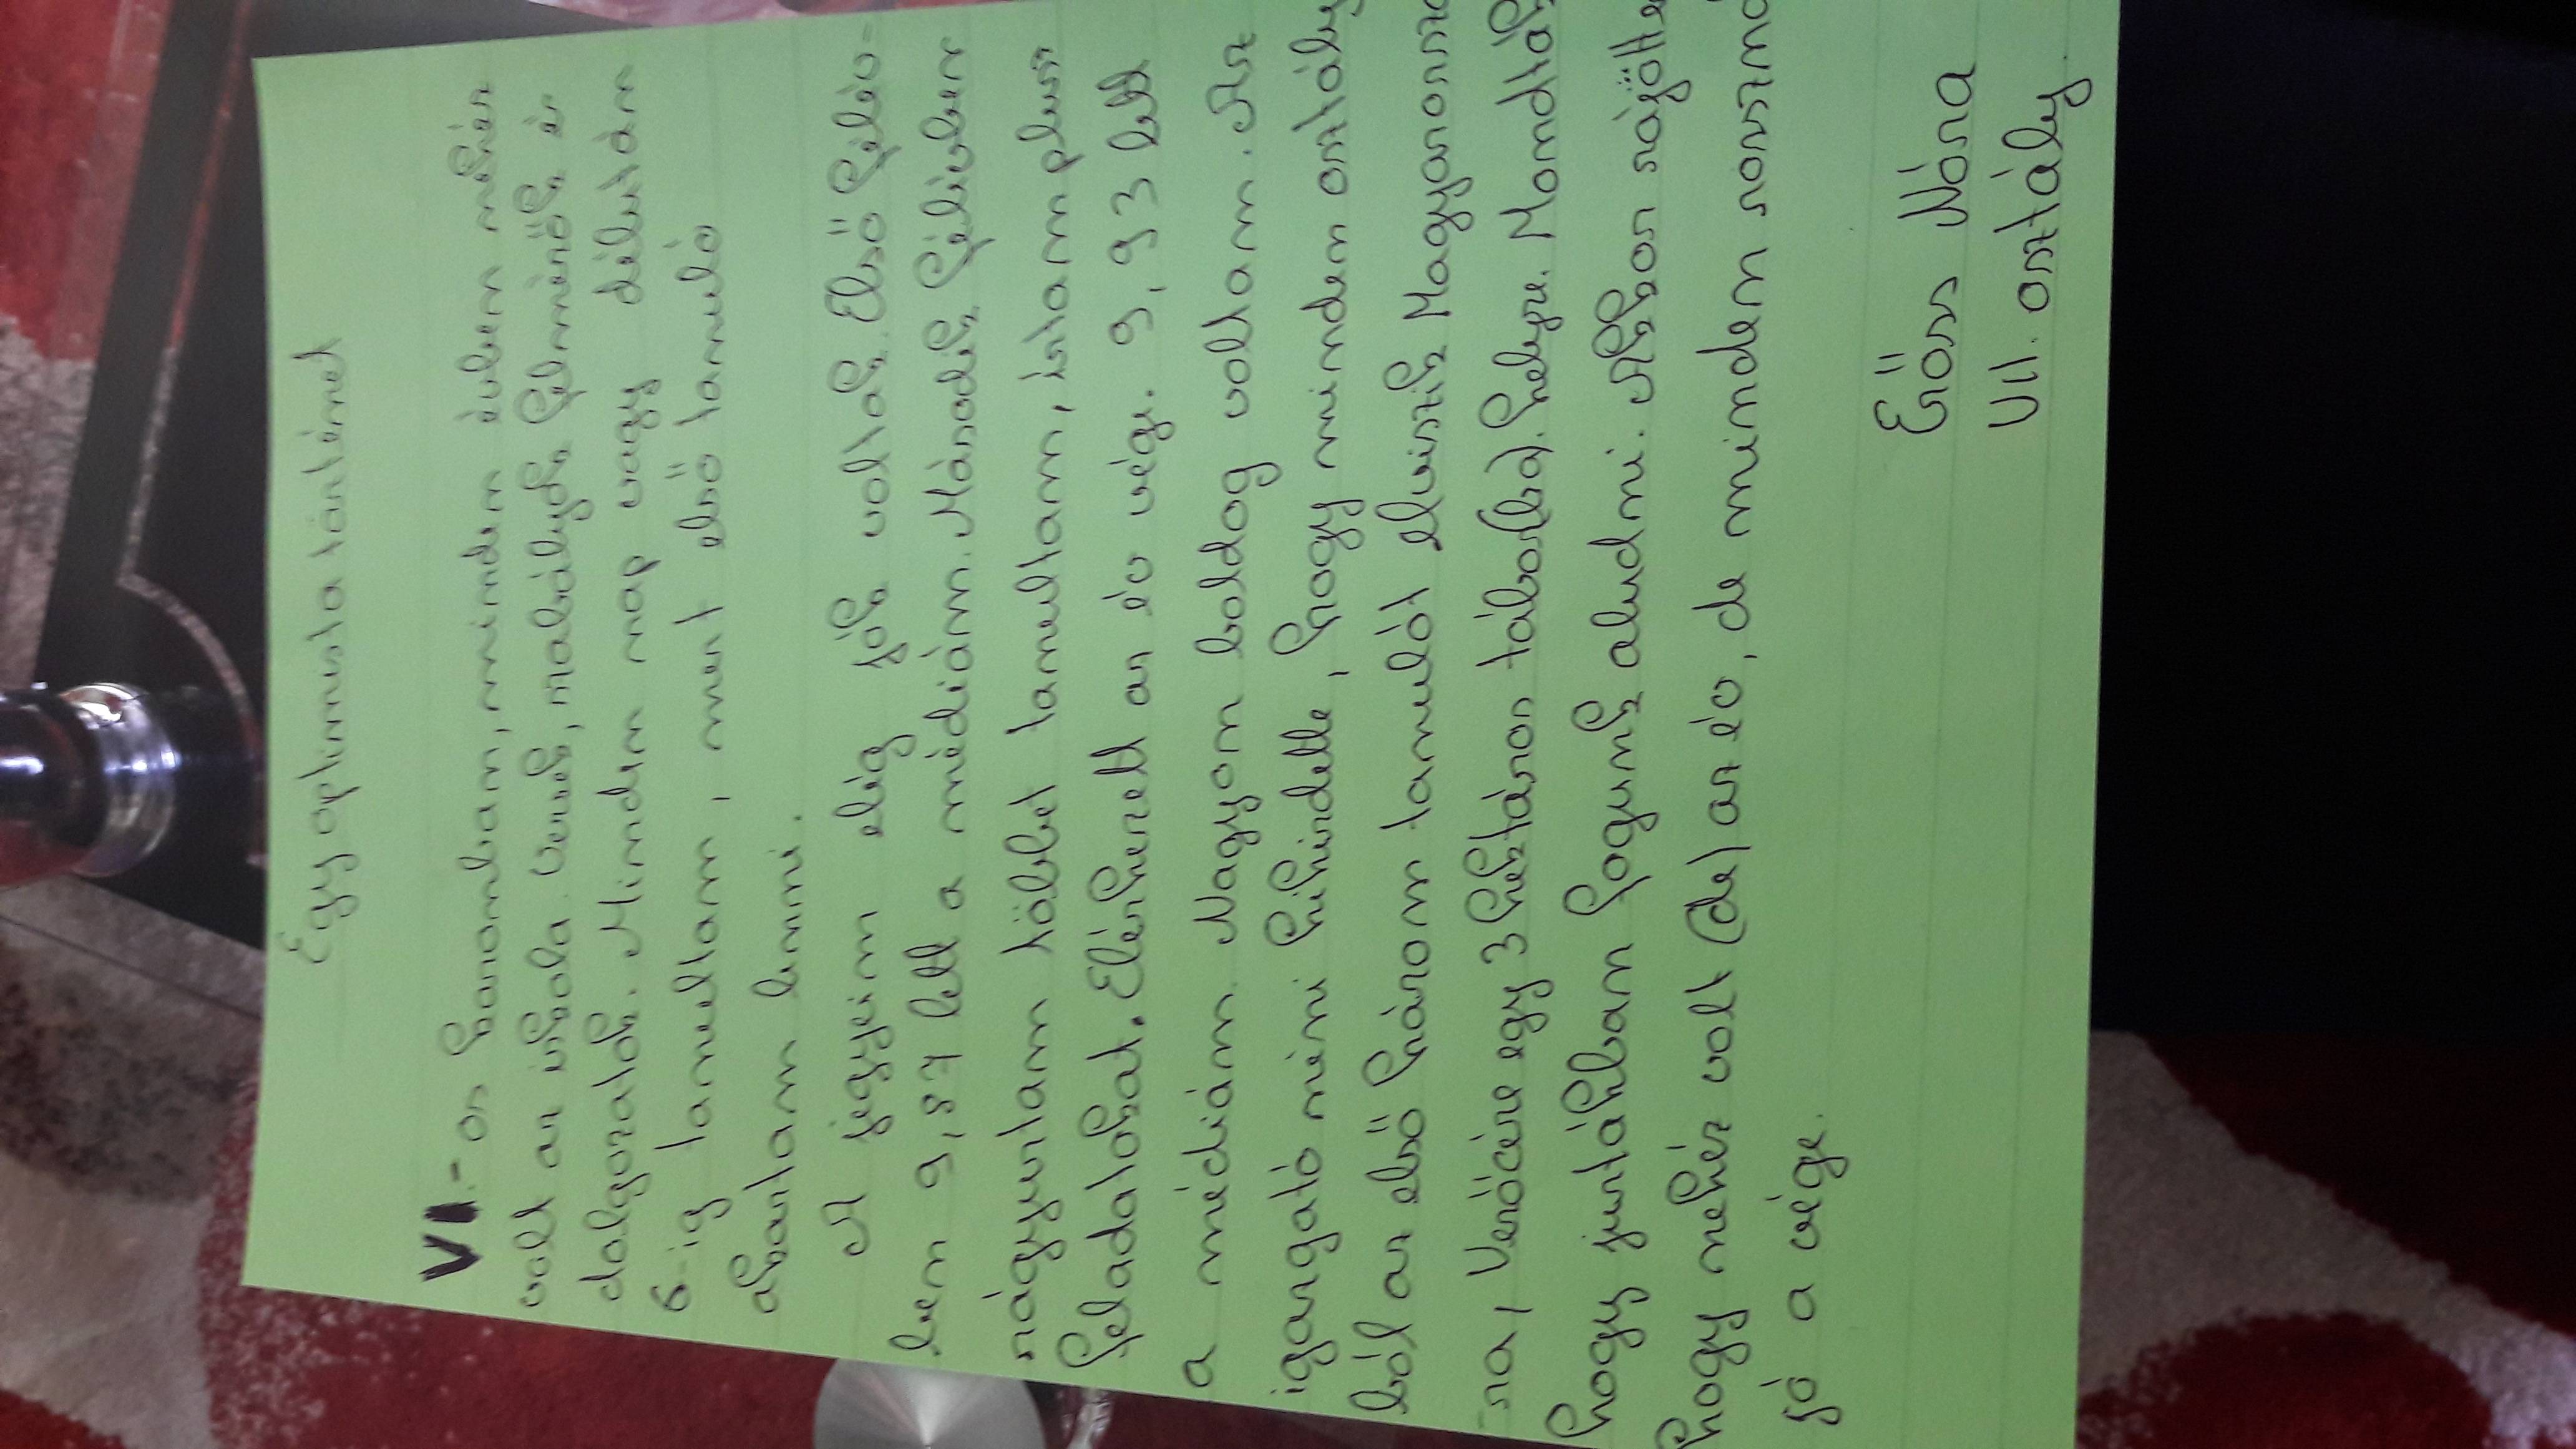 Egy optimista történet
VI.-os koromban, minden évben nehéz
volt az iskola. Verek, matekályok, felmérők és
dolgozatok. Minden nap vagy délután
6-ig tanultam, mert első tanuló
akartam lenni.
A jegyeim elég jók voltak. Első félév-
ben 9,87 lett a médiám. Második félévben
rágyúrtam többet tanultam, írtam plusz
feladatokat. Elérkezett az év vége. 9,93 lett
a médiám. Nagyon boldog voltam. Az
igazgató néni kihirdette, hogy minden osztály
ból az első három tanulót elviszik Magyarorszá
-ra, Verőcére egy 3 hektáros tábor(ba)helyre. Mondták,
hogy jurtákban fogunk aludni. Akkor rájötte
hogy nehéz volt (de) az év, de minden rosszna
jó a vége.
Erőss Nóra
VII. osztály